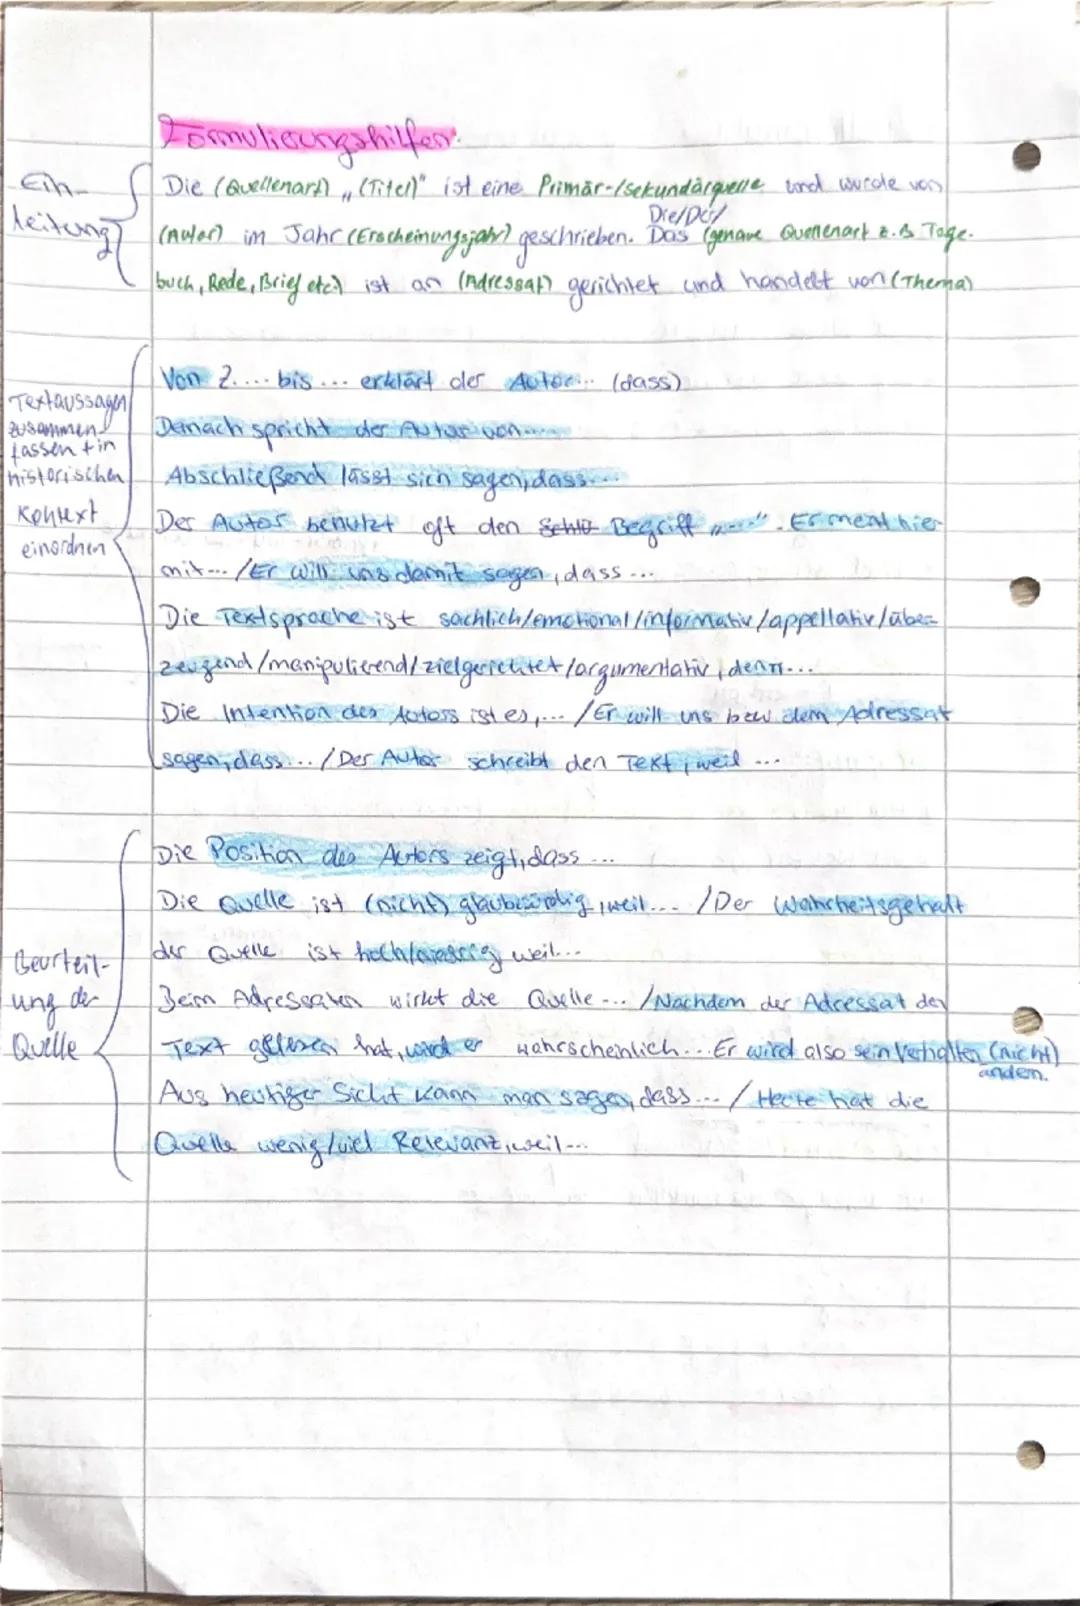 Formulierungshilfen:
Ein-
leitung
Die (Quellenart) „(Titel)" ist eine Primär-/Sekundärquelle und wurde von
(Autor) im Jahr (Erscheinungsjahr) geschrieben. Das (genaue Quellenart z.B Tage-
Die/Der/
buch, Rede, Brief etc.) ist an (Adressat) gerichtet und handelt von (Thema)
Textaussagen
zusammen-
fassen + in
historischen
Kontext
einordnen
Von Z.... bis ... erklärt der Autor... (dass)
Danach spricht der Autor von....
Abschließend lässt sich sagen, dass...
Der Autor benutzt oft den Begriff „...". Er meint hier
mit... /Er will uns damit sagen, dass ...
Die Textsprache ist sachlich/emotional/informativ/appellativ/über-
zeugend/manipulierend/zielgerichtet/argumentativ, denn...
Die Intention des Autors ist es,... /Er will uns bzw dem Adressat
sagen, dass ... /Der Autor schreibt den Text, weil ...
Beurteil-
ung der
Quelle
Die Position des Autors zeigt, dass ...
Die Quelle ist (nicht) glaubwürdig, weil... /Der Wahrheitsgehalt
der Quelle ist hoch/niedrig weil...
Beim Adressaten wirkt die Quelle ... /Nachdem der Adressat den
Text gelesen hat, wird er wahrscheinlich... Er wird also sein Verhalten (nicht)
ändern.
Aus heutiger Sicht kann man sagen, dass ... / Heute hat die
Quelle wenig/viel Relevanz, weil...